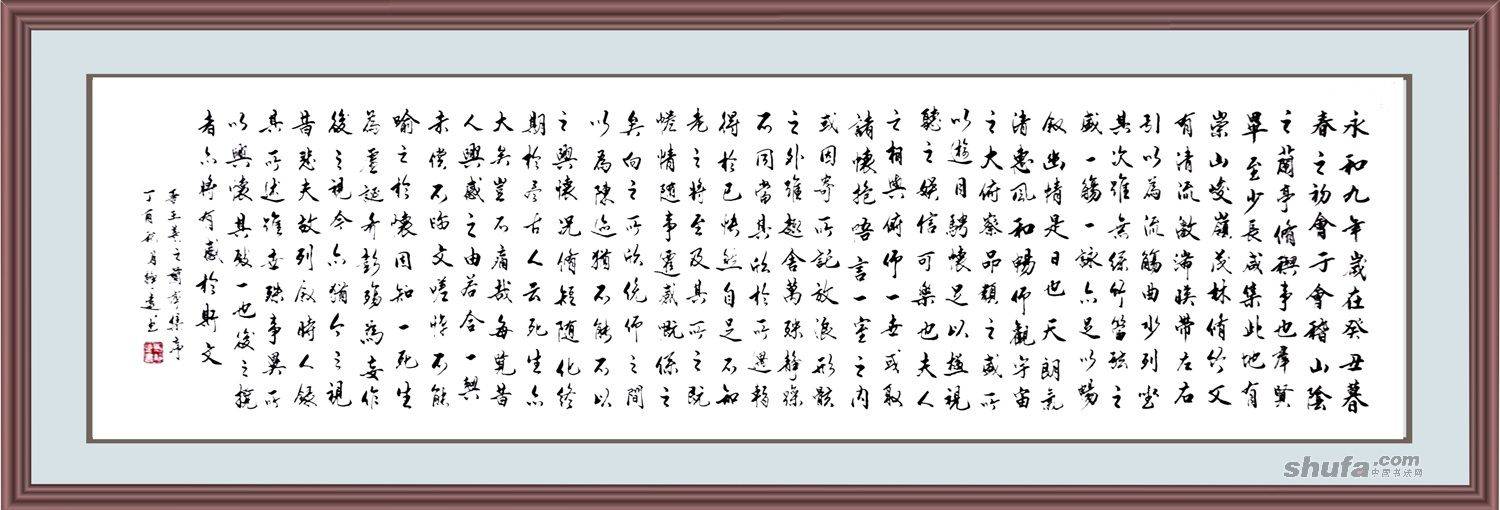 永和九年歲在癸丑暮
春之初會于會稽山陰
之蘭亭脩禊事也羣賢
畢至少長咸集此地有
崇山峻嶺茂林脩竹又
有清流激湍暎帶左右
引以為流觴曲水列坐
其次雖無絲竹管弦之
盛一觴一詠亦足以暢
叙幽情是日也天朗氣
清惠風和暢仰觀宇宙
之大俯察品類之盛所
以遊目騁懷足以極視
聽之娛信可樂也夫人
之相與俯仰一世或取
諸懷抱唔言一室之內
或因寄所託放浪形骸
之外雖趣舍萬殊靜躁
不同當其欣於所遇暫
得於己快然自足不知
老之將至及其所之既
惓情隨事遷感慨係之
矣向之所欣俛仰之間
以為陳迹猶不能不以
之興懷況脩短隨化終
期於盡古人云死生亦
大矣豈不痛哉每覽昔
人興感之由若合一契
未嘗不臨文嗟悼不能
喻之於懷固知一死生
為虛誕齊彭殤為妄作
後之視今亦猶今之視
昔悲夫故列叙時人錄
其所述雖世殊事異所
以興懷其致一也後之攬
者亦將有感於斯文
晉王羲之蘭亭集序
丁酉秋月
shufa.com
中国书法网